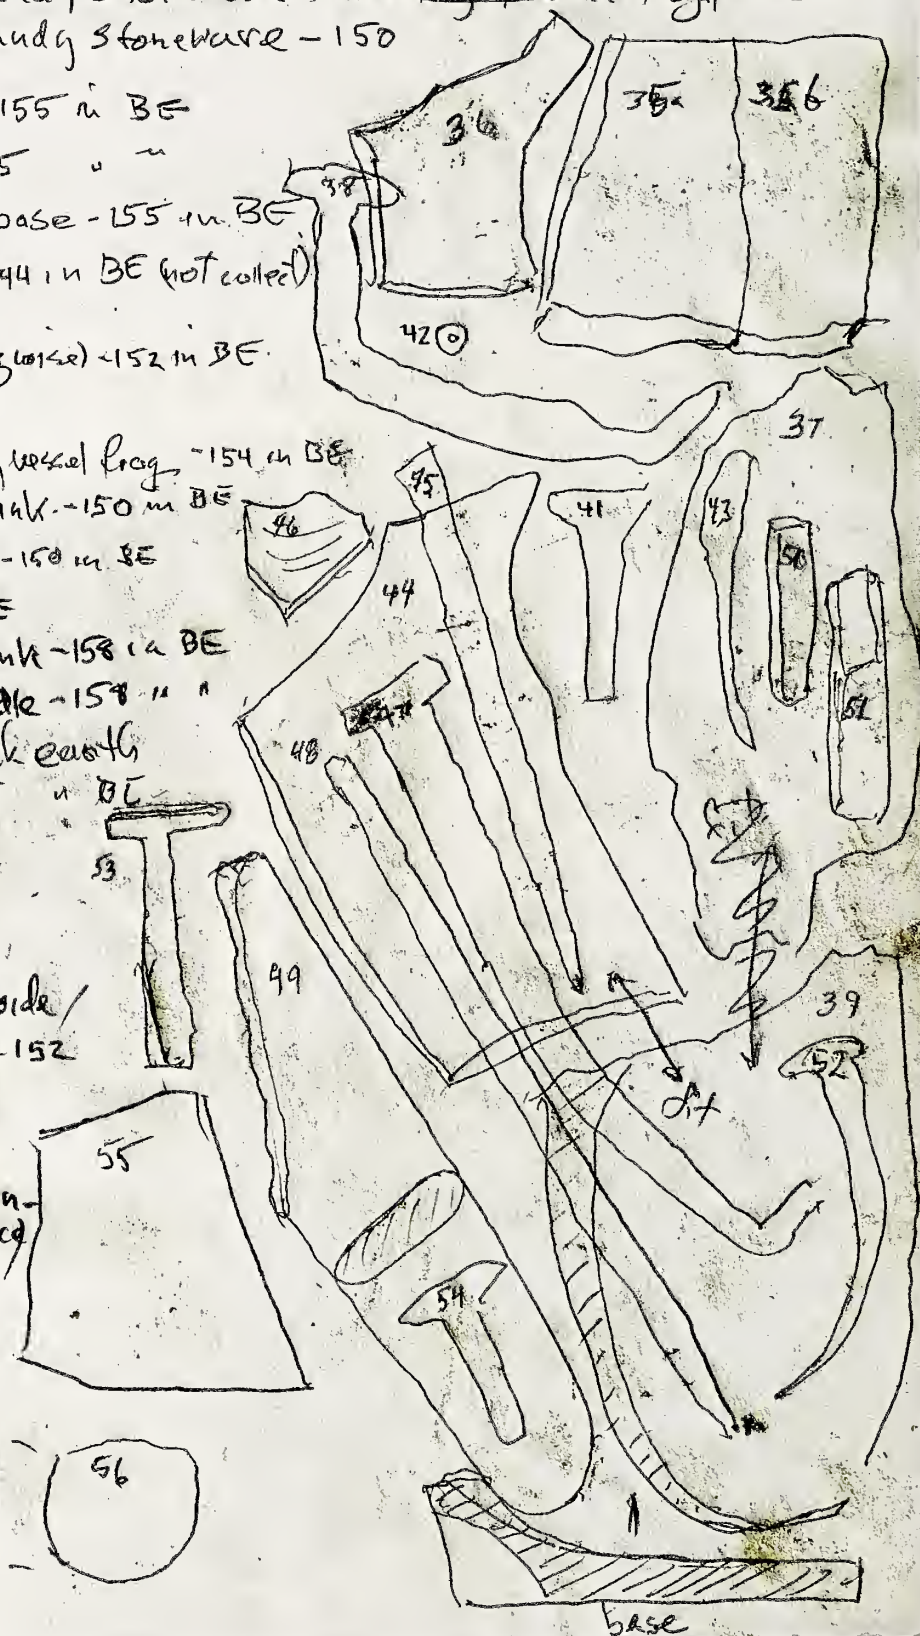 stoneware - 150
155 in BE
5 " "
base - 155 in BE
44 in BE (not collect)
- 152 in BE
vessel frag. - 154 in BE
- 150 in BE
- 150 in BE
E
- 158 in BE
- 158 " "
k earth
" BE
side/
- 152
36
35a
35b
38
42
37
45
46
41
43
50
44
51
47
48
53
49
39
52
55
54
56
base